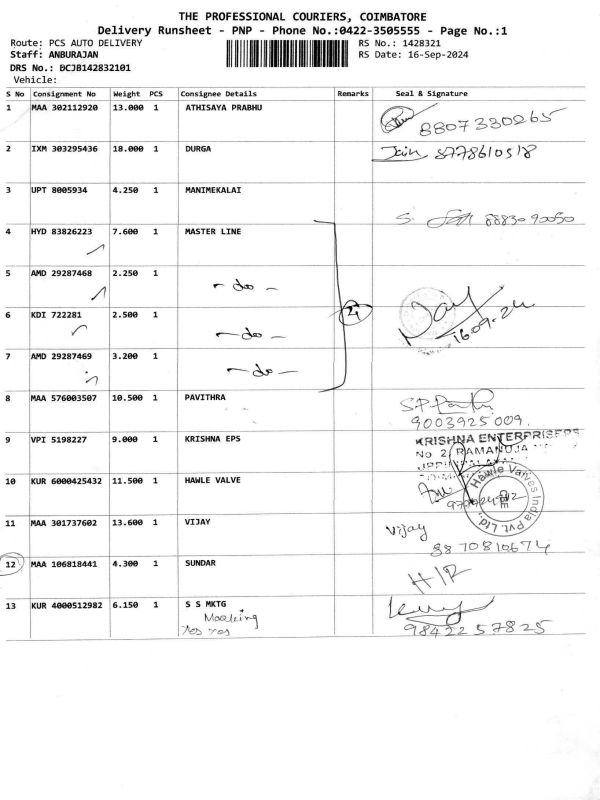 THE PROFESSIONAL COURIERS, COIMBATORE
Delivery Runsheet - PNP - Phone No.:0422-3505555 - Page No.:1
Route: PCS AUTO DELIVERY RS No.: 1428321
Staff: ANBURAJAN RS Date: 16-Sep-2024
DRS No.: DCJB142832101
Vehicle:
S No Consignment No Weight PCS Consignee Details Remarks Seal & Signature
1 MAA 302112920 13.000 1 ATHISAYA PRABHU
8807330265
2 IXM 303295436 18.000 1 DURGA Jain 8778610518
3 UPT 8005934 4.250 1 MANIMEKALAI
S. 8883090050
4 HYD 83826223 7.600 1 MASTER LINE
5 AMD 29287468 2.250 1
- do -
6 KDI 722281 2.500 1
- do -
16.09.24
7 AMD 29287469 3.200 1
- do -
8 MAA 576003507 10.500 1 PAVITHRA
9003925009
9 VPI 5198227 9.000 1 KRISHNA EPS
KRISHNA ENTERPRISES
No 2, RAMANUJA
10 KUR 6000425432 11.500 1 HAWLE VALVE
Hawle Valves India Pvt. Ltd.
11 MAA 301737602 13.600 1 VIJAY
Vijay
8870810674
12 MAA 106818441 4.300 1 SUNDAR
H/R
13 KUR 4000512982 6.150 1 S S MKTG
9842257825